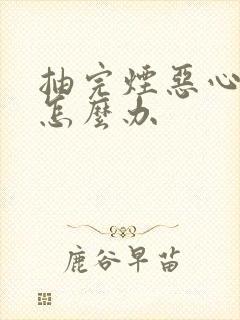 抽完煙惡心
怎麼办
鹿谷早苗